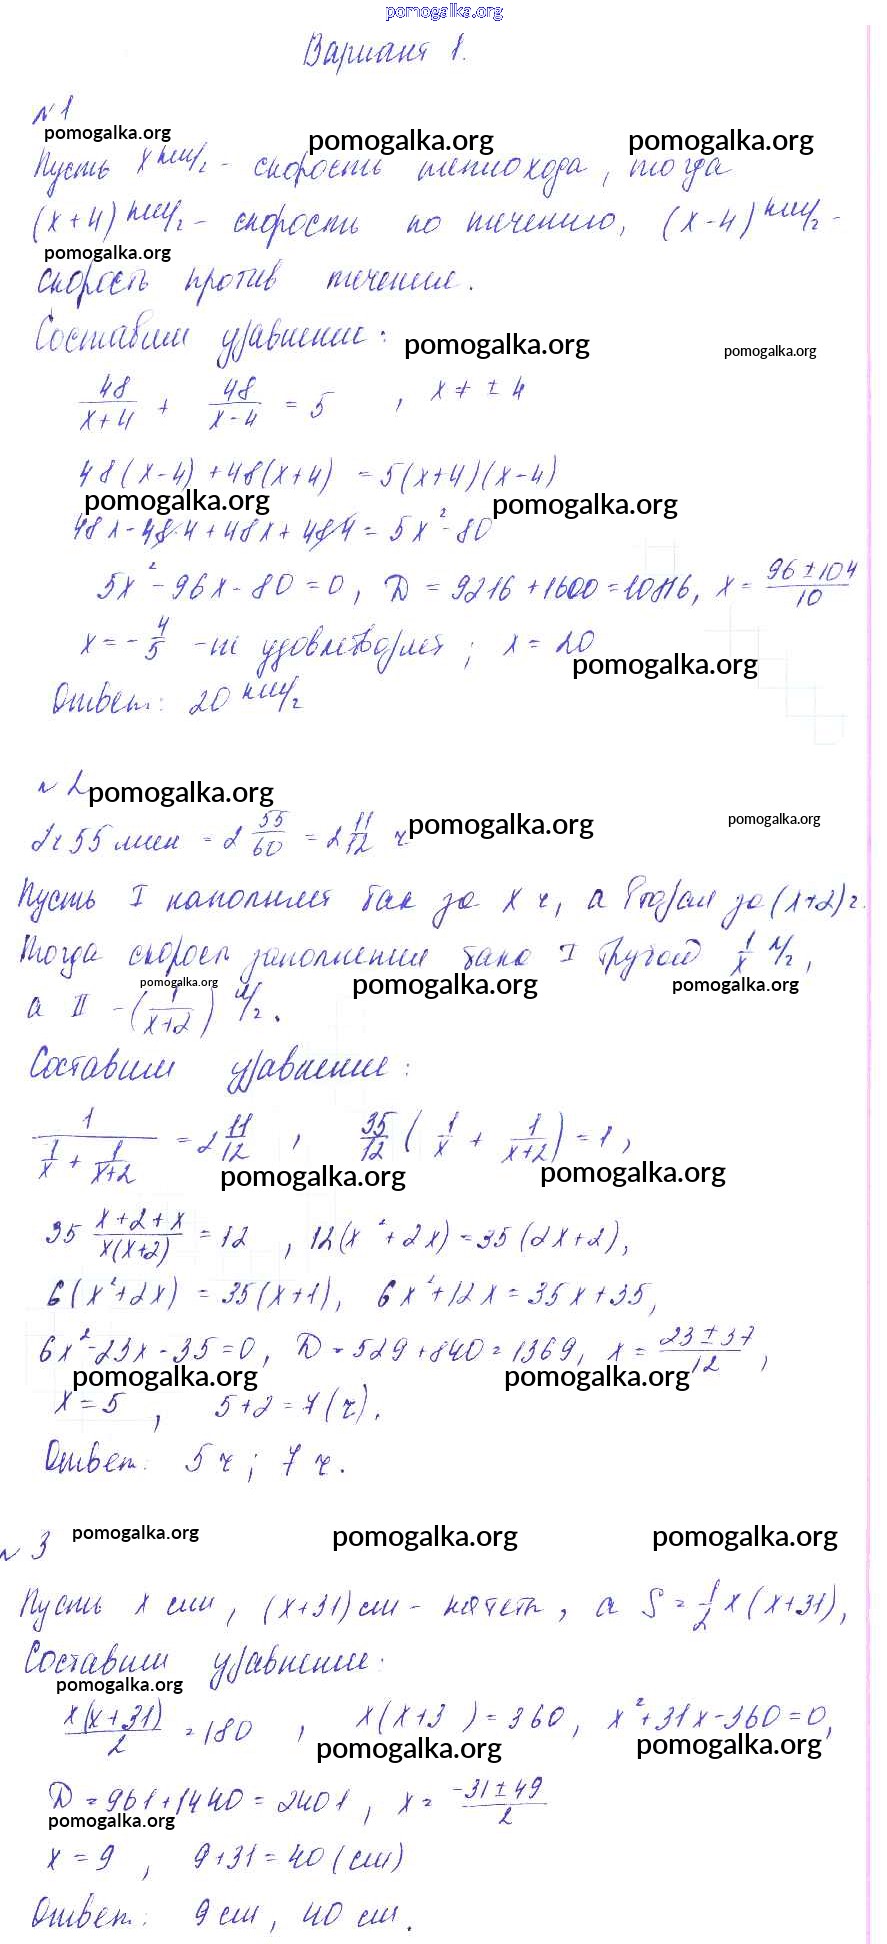 pomogalka.org
Вариант 1.
№1
pomogalka.org
Пусть x км/г - скорость теплохода, тогда
pomogalka.org pomogalka.org
(x+4) км/г - скорость по течению, (x-4) км/г -
pomogalka.org
скорость против течение.
Составим уравнение:
pomogalka.org pomogalka.org
48/(x+4) + 48/(x-4) = 5 , x ≠ ± 4
48(x-4) + 48(x+4) = 5(x+4)(x-4)
pomogalka.org pomogalka.org
48x - 48·4 + 48x + 48·4 = 5x² - 80
5x² - 96x - 80 = 0, D = 9216 + 1600 = 10816, x = (96 ± 104)/10
x = -4/5 - не удовлетворяет; x = 20
pomogalka.org
Ответ: 20 км/г
№ 2
pomogalka.org
2ч 55 мин = 2 55/60 = 2 11/12 ч
pomogalka.org pomogalka.org
Пусть I наполнит бак за x ч, а вторая за (x+2) г.
Тогда скорость заполнения бака I трубой 1/x л/г,
pomogalka.org pomogalka.org pomogalka.org
а II - (1/(x+2)) л/г.
Составим уравнение:
1/(1/x + 1/(x+2)) = 2 11/12 , 35/12 (1/x + 1/(x+2)) = 1,
pomogalka.org pomogalka.org
35 (x+2+x)/(x(x+2)) = 12 , 12(x² + 2x) = 35(2x+2),
6(x²+2x) = 35(x+1), 6x² + 12x = 35x + 35,
6x² - 23x - 35 = 0, D = 529 + 840 = 1369, x = (23 ± 37)/12 ,
pomogalka.org pomogalka.org
x = 5 , 5+2 = 7 (ч).
Ответ: 5 ч; 7 ч.
№ 3
pomogalka.org pomogalka.org pomogalka.org
Пусть x см, (x+31) см - катеты, а S = 1/2 x (x+31),
Составим уравнение:
pomogalka.org
x(x+31)/2 = 180 , x(x+3 ) = 360, x² + 31x - 360 = 0,
pomogalka.org pomogalka.org
D = 961 + 1440 = 2401, x = (-31 ± 49)/2
pomogalka.org
x = 9 , 9+31 = 40 (см)
Ответ: 9 см, 40 см.